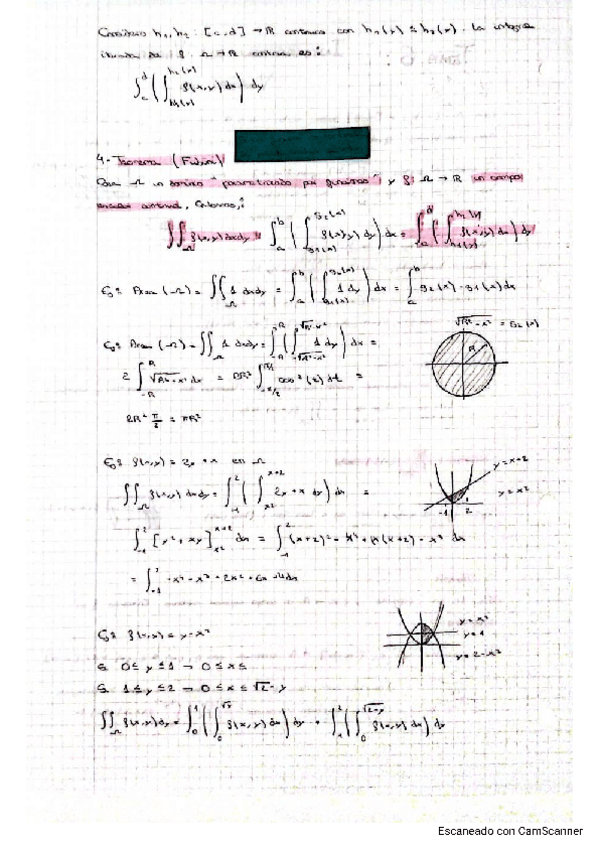 Considero h₁, h₂ : [c,d] → ℝ continuas con h₁(y) ≤ h₂(y). La integral
iterada de f: Ω → ℝ continua es:
∫_c^d ( ∫ f(x,y) dx ) dy
4- Teorema (Fubini)
Sea Ω un dominio "parametrizado por y f: Ω → ℝ un campo
escalar continuo, entonces:
∬_Ω f(x,y) dxdy = ∫_a^b ( ∫_{g₁(x)}^{g₂(x)} f(x,y) dy ) dx = ( ∫ f(x,y) dx ) dy
Ej: Area (Ω) = ∬_Ω 1 dxdy = ∫_a^b ( ∫_{g₁(x)}^{g₂(x)} 1 dy ) dx = ∫_a^b g₂(x) - g₁(x) dx
√R²-x² = g₂(x)
R
Ej: Area (Ω) = ∬_Ω 1 dxdy = ∫_{-R}^R ( ∫ 1 dy ) dx =
2 ∫_{-R}^R √R²-x² dx = 2R² ∫_{-π/2}^{π/2} cos²(t) dt =
2R² π/2 = πR²
Ej: f(x,y) = 2y + x en Ω
y = x+2
y = x²
-1 2
∬_Ω f(x,y) dxdy = ∫_{-1}^2 ( ∫_{x²}^{x+2} 2y + x dy ) dx =
∫_{-1}^2 [y² + xy]_{x²}^{x+2} dx = ∫_{-1}^2 (x+2)² - x⁴ + x(x+2) - x³ dx
= ∫_{-1}^2 -x⁴ - x³ + 2x² + 6x + 4 dx
y = x²
y = 1
y = 2-x²
Ej: f(x,y) = y-x²
Si 0 ≤ y ≤ 1 → 0 ≤ x ≤
Si 1 ≤ y ≤ 2 → 0 ≤ x ≤ √2-y
∬_Ω f(x,y) dy = ∫_0^1 ( ∫_0^{√y} f(x,y) dx ) dy + ∫_1^2 ( ∫_0^{√2-y} f(x,y) dx ) dy
Escaneado con CamScanner